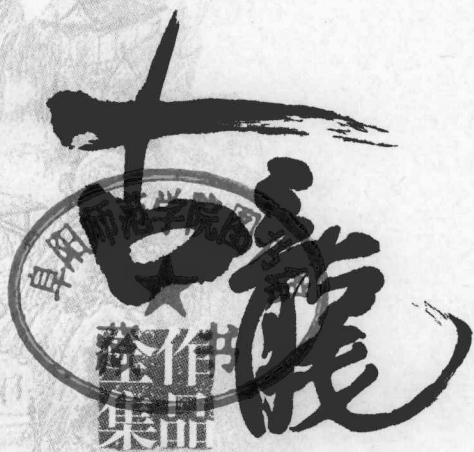 古龍
作品
全集
阜阳师范学院图书馆
藏书